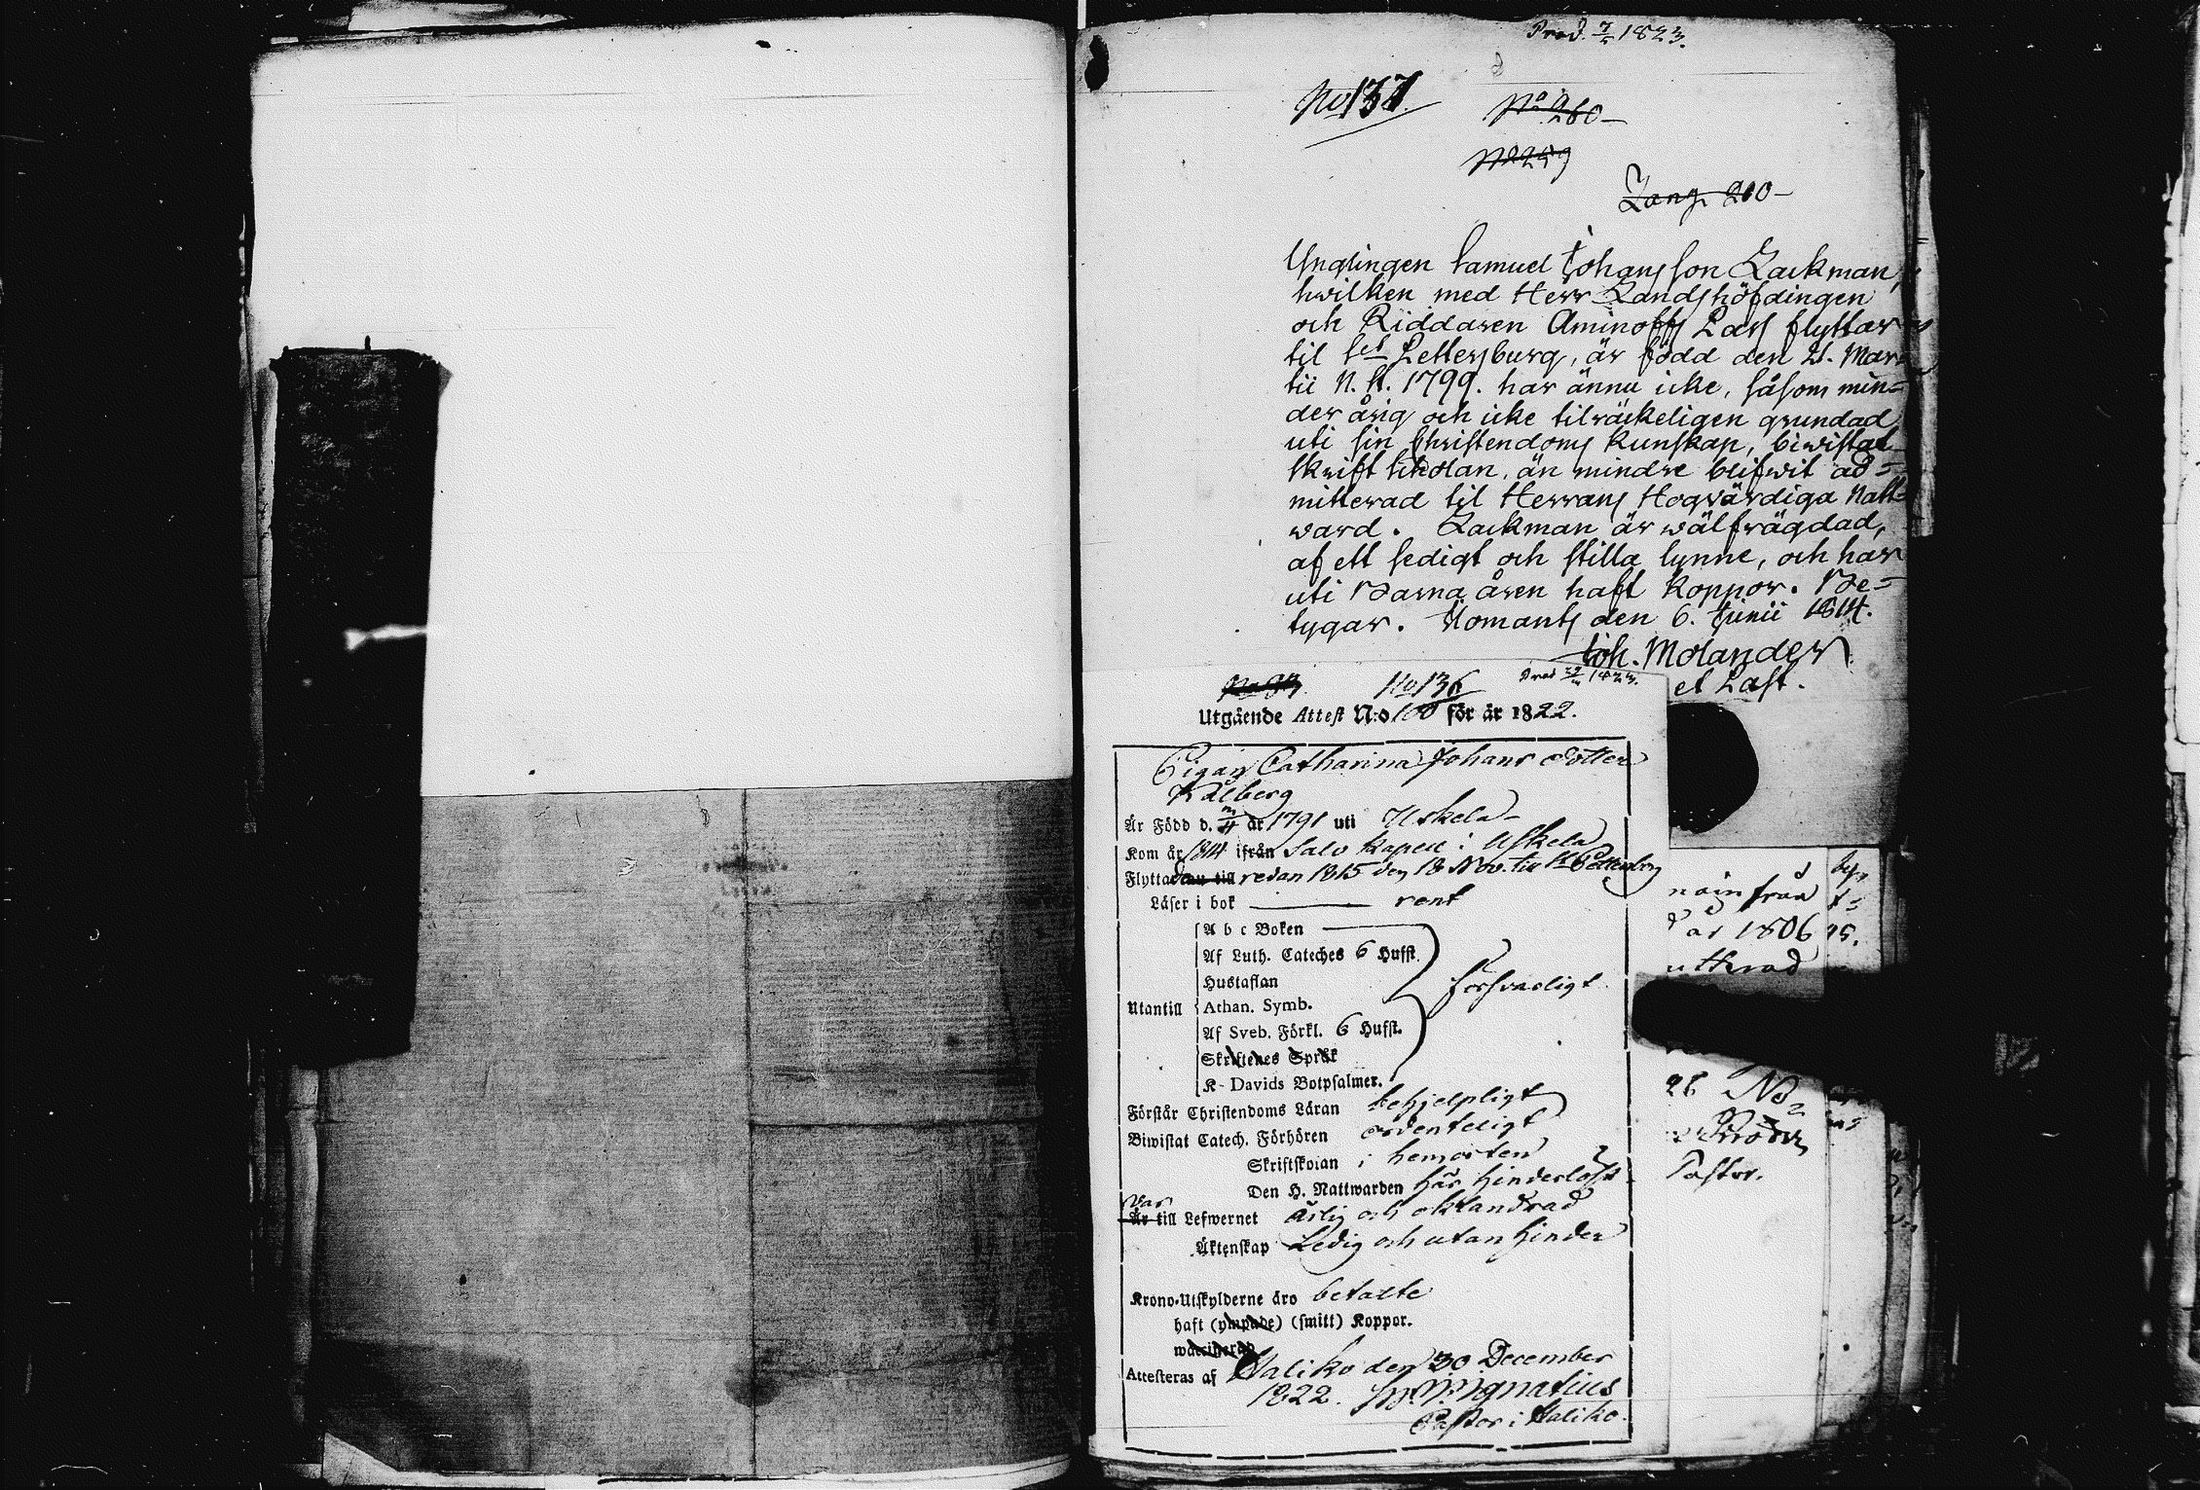 Prod. 7/2 1823.
No 137.
No 260–
No 259
Ynglingen Samuel Johansson Zackman,
hwilken med Herr Landshöfdingen
och Riddaren Aminoffs Pass flyttar
til S:ct Pettersburg, är född den 21. Mar-
tii N. St. 1799. har ännu icke, såsom min-
der årig och icke tilräckeligen grundad
uti sin Christendoms kunskap, biwistat
Skrift Scholan, än mindre blifwit ad-
mitterad til Herrans Högvärdiga Natt-
ward. Zackman är wälfrägdad,
af ett sedigt och stilla lynne, och har
uti Barna åren haft koppor. Be-
tygar. Ilomants den 6. Junii 1814.
Joh. Molander
et Past.
No 136 Prod 1823.
Utgående Attest N:o 100 för år 1822.
Pigan Catharina Johans dotter
Kålberg
Är Född d. år 1791 uti Uskela
Kom år 1814 ifrån Salo Kapell i Uskela
Flyttade redan 1815 den 18 Nov. till St Pettersburg
Läser i bok ——— rent
A b c Boken
Af Luth. Cateches 6 Hufst.
Hustaflan
försvarligt
Utantill Athan. Symb.
Af Sveb. Förkl. 6 Hufst.
Skriftenes Språk
K. Davids Botpsalmer.
Förstår Christendoms Läran behjelpligt
Biwistat Catech. Förhören ordenteligt
Skriftskolan i hemorten
Den H. Nattwarden här hinderlöst
Var
Är till Lefwernet ärlig och oklandrad
Äktenskap Ledig och utan hinder
Krono-Utskylderne äro betalte
haft (ympade) (smitt) Koppor.
waccinerad
Attesteras af Haliko den 30 December
1822. Ignatius
Pastor i Haliko.
från
år 1806
26 No
Pastor.